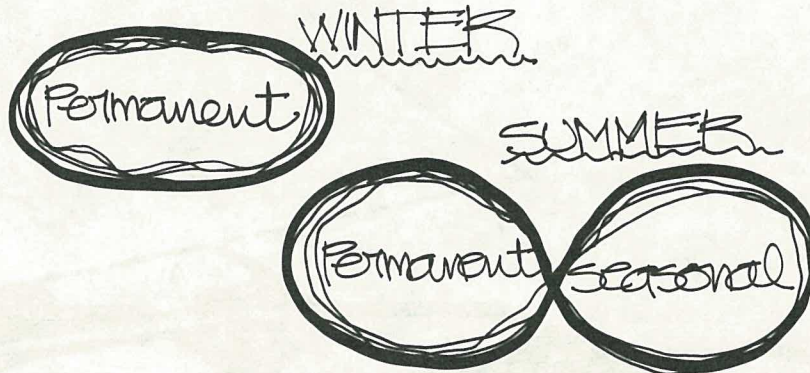 WINTER
Permanent
SUMMER
Permanent seasonal